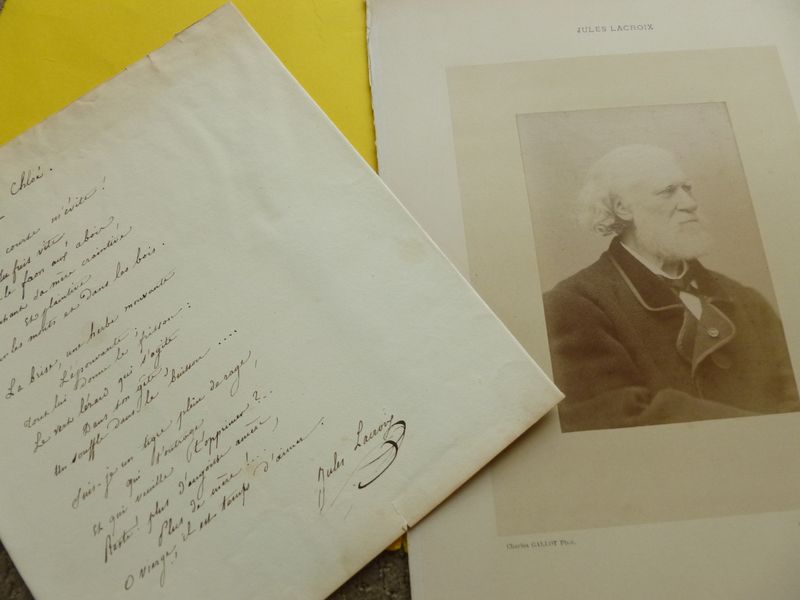 Chloé.
course m'évite !
fuis vite
le faon aux abois
sa mère craintive
Et plaintive
les monts et dans les bois.
La brise, une herbe mouvante
L'épouvante ;
Tout lui donne le frisson :
Le vert lézard qui s'agite
Dans son gîte,
Un souffle dans le buisson ....
Suis-je un tigre plein de rage,
qui t'outrage
Et qui veuille t'opprimer ?...
Reste ! plus d'angoisse amère,
Plus de mère !...
O vierge, il est temps d'aimer.
Jules Lacroix
JULES LACROIX
Charles GALLOT Phot.